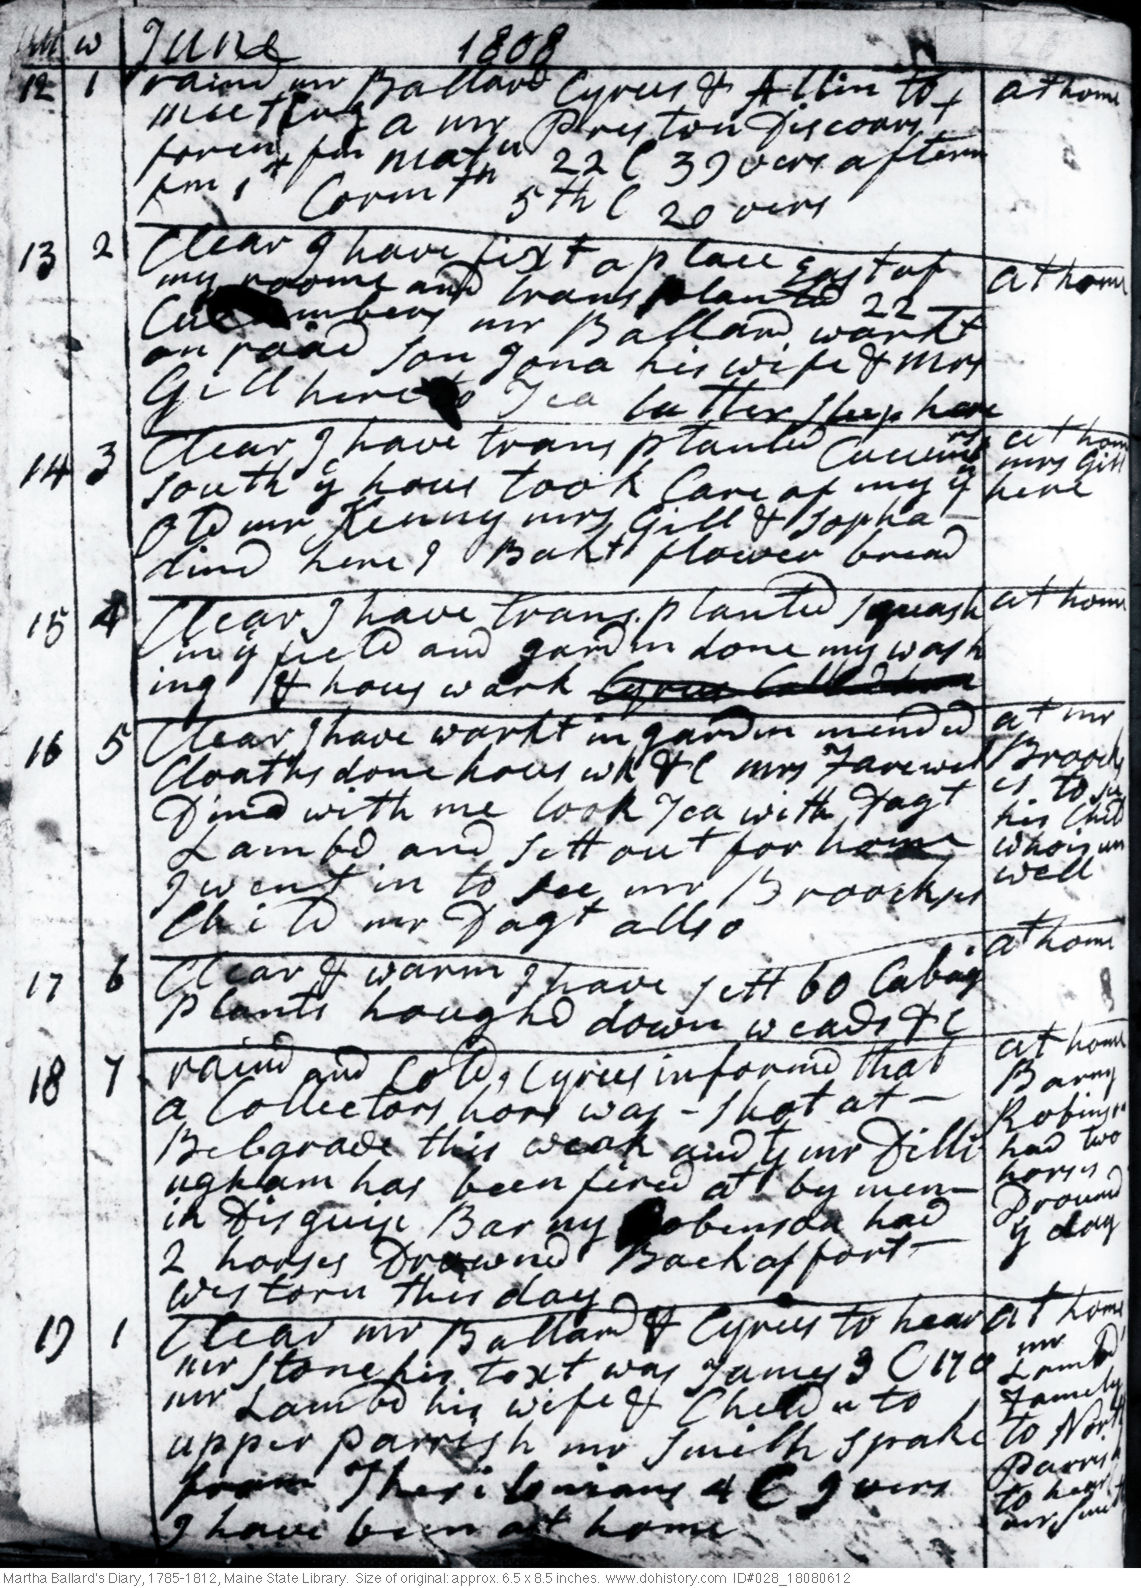 m w June 1808
12 1 raind mr Ballard Cyrus & Allin to at home
meeting a mr Preston Discoarst
foren fm Matw 22 C 39 vers aftern
fm 1st Corinth 5th C 20 vers
13 2 Clear I have fixt a place East of at home
my roome and transplantd 22
Cucumbers mr Ballard workt
on road son Jona his wife & Mrs
Gill here to Tea latter sleep here
14 3 Clear I have transplanted Cucum at home
South ye hous took Care of my mrs Gill
old mr Kenny mrs Gill & Sopha here
dind here I Bakt flower bread
15 4 Clear I have transplanted squash at home
in ye field and gardin done my wash
ing & hous work Cyrus
16 5 Clear I have workt in gardin mended at mr
Cloaths done hous wk &C mrs Farewel Broocks
Dind with me took Tea with Dagt is to see
Lambd and sett out for home his Child
I went in to see mr Broockses who is un
Child mr Dagt allso well
17 6 Clear & warm I have sett 60 Cabag at home
Plants houghd down weads &C
18 7 raind and Cold, Cyrus informd that at home
a Collectors hors was - shot at - Barny
Belgrade this weak and yt mr Dilli Robinson
ngham has been fired at by men had two
in Disguise Barny Robinson had horses
2 horses Drownd Back of fort Dround
Western this day ye day
19 1 Clear mr Ballard & Cyrus to hear at home
mr Stone his text was James 3 C 17 mr
mr Lambd his wife & Children to Lambd
upper parrish mr Smith spake Family
from Thesilonians 4 C 9 vers to North
I have been at home Parrish
to hear
mr Smith
Martha Ballard's Diary, 1785-1812, Maine State Library. Size of original: approx. 6.5 x 8.5 inches. www.dohistory.com ID#028_18080612